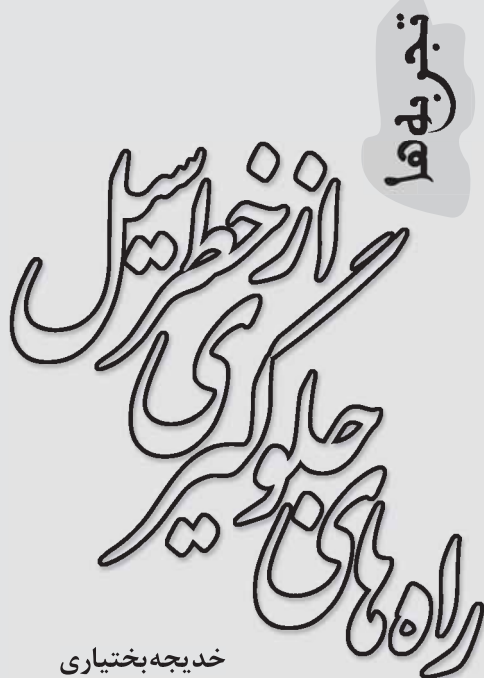 تجربه‌ها
راه های
جلوگیری
از خطر سیل
خدیجه بختیاری